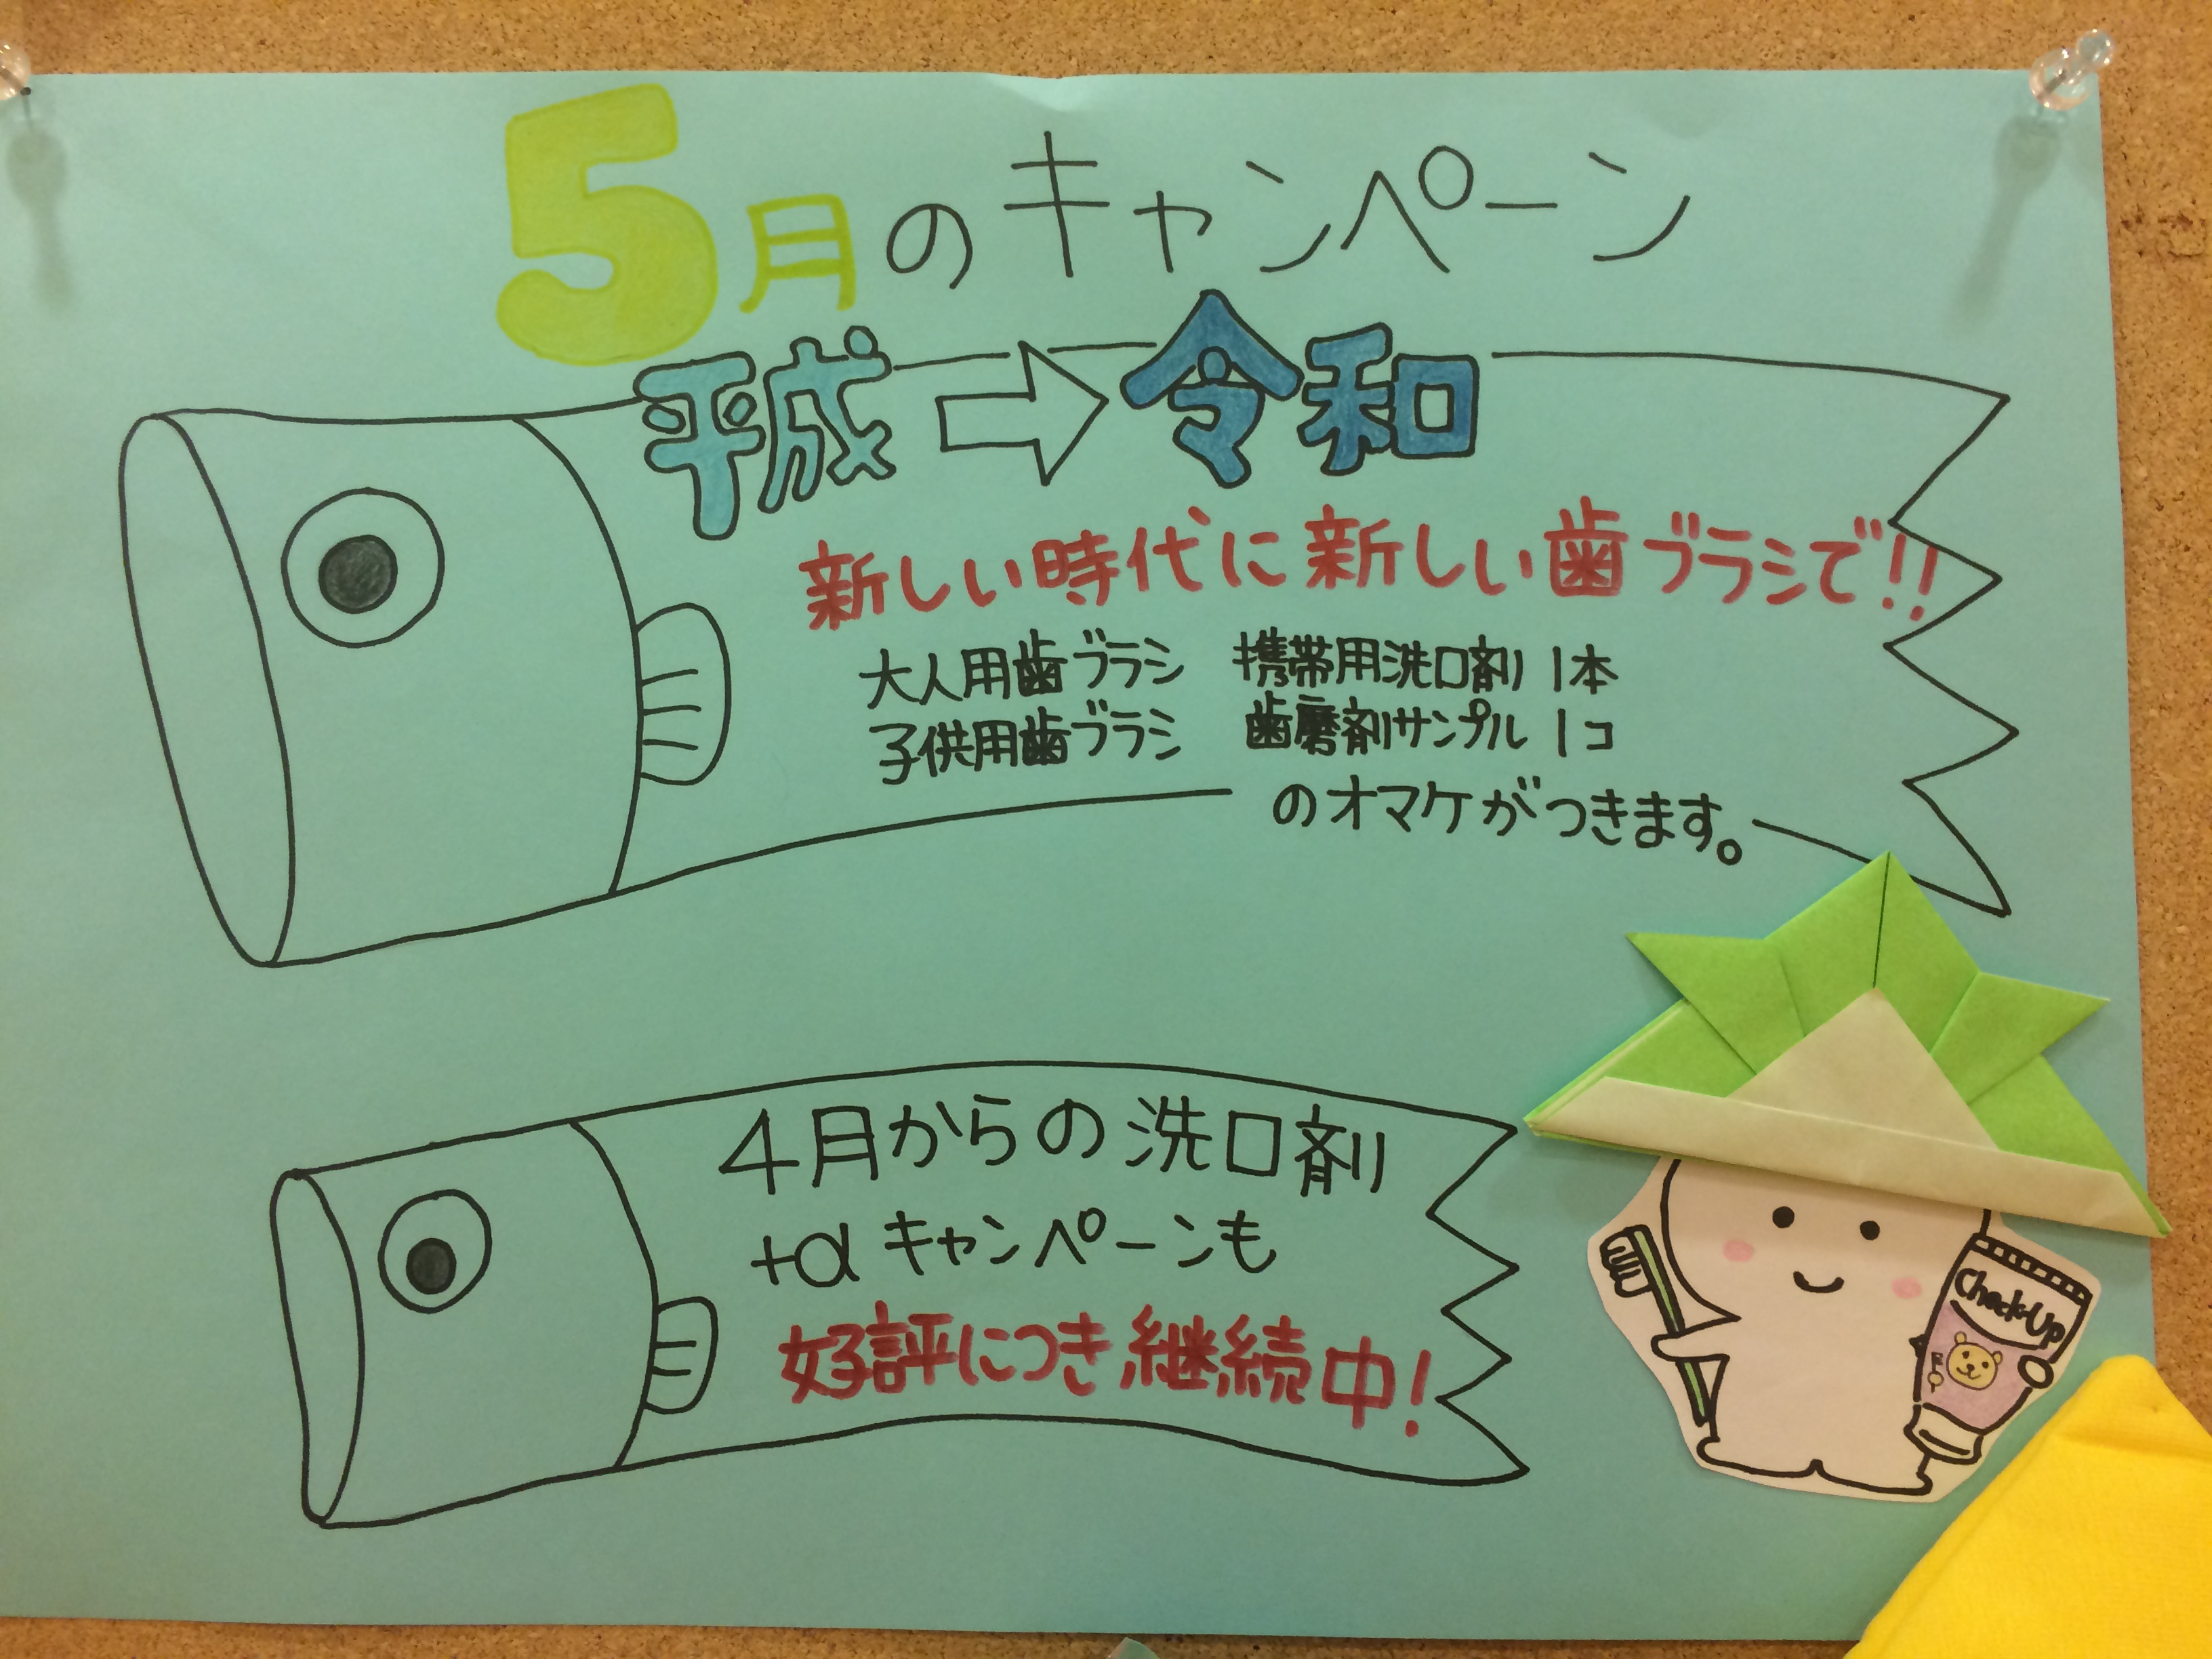 5月のキャンペーン
平成⇨令和
新しい時代に新しい歯ブラシで!!
大人用歯ブラシ 携帯用洗口剤 1本
子供用歯ブラシ 歯磨剤サンプル 1コ
のオマケがつきます。
4月からの洗口剤
+αキャンペーンも
好評につき継続中!
Check-Up